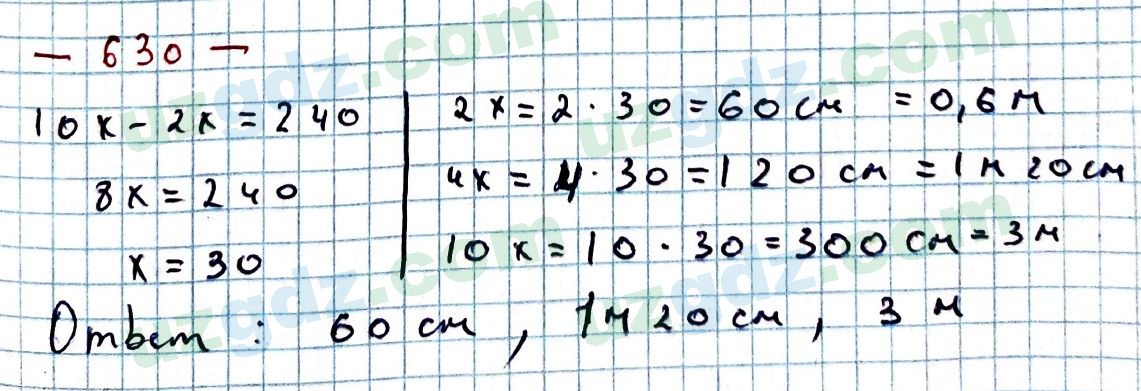 — 630 —
10x - 2x = 240
8x = 240
x = 30
2x = 2 · 30 = 60 см = 0,6 м
4x = 4 · 30 = 120 см = 1 м 20 см
10x = 10 · 30 = 300 см = 3 м
Ответ : 60 см , 1 м 20 см , 3 м
uzgdz.com
uzgdz.com
uzgdz.com
uzgdz.com